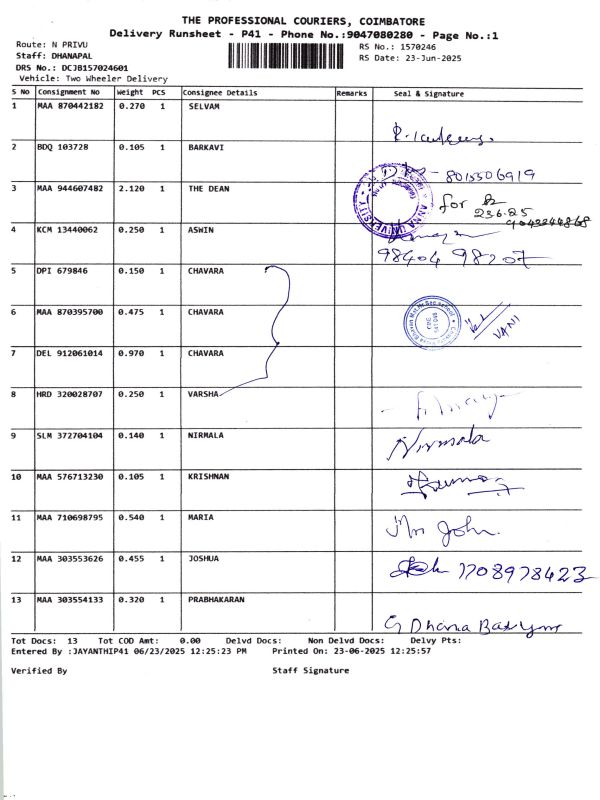 THE PROFESSIONAL COURIERS, COIMBATORE
Delivery Runsheet - P41 - Phone No.:9047080280 - Page No.:1
Route: N PRIVU
Staff: DHANAPAL
DRS No.: DCJB157024601
Vehicle: Two Wheeler Delivery
RS No.: 1570246
RS Date: 23-Jun-2025
S No Consignment No Weight PCS Consignee Details Remarks Seal & Signature
1 MAA 870442182 0.270 1 SELVAM
2 BDQ 103728 0.105 1 BARKAVI 8015506919
3 MAA 944607482 2.120 1 THE DEAN ANNA UNIVERSITY for
23.6.25
4 KCM 13440062 0.250 1 ASWIN
98404 98207
5 DPI 679846 0.150 1 CHAVARA
6 MAA 870395700 0.475 1 CHAVARA VANI
7 DEL 912061014 0.970 1 CHAVARA
8 HRD 320028707 0.250 1 VARSHA
9 SLM 372704104 0.140 1 NIRMALA Nirmala
10 MAA 576713230 0.105 1 KRISHNAN
11 MAA 710698795 0.540 1 MARIA John.
12 MAA 303553626 0.455 1 JOSHUA 7708978423
13 MAA 303554133 0.320 1 PRABHAKARAN
G Dhana
Tot Docs: 13 Tot COD Amt: 0.00 Delvd Docs: Non Delvd Docs: Delvy Pts:
Entered By :JAYANTHIP41 06/23/2025 12:25:23 PM Printed On: 23-06-2025 12:25:57
Verified By Staff Signature